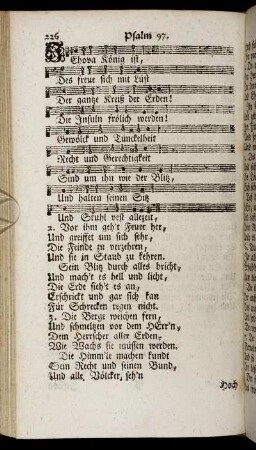 226 Psalm 97.
JEhova König ist,
Des freue sich mit Lust
Der gantze Kreiß der Erden!
Die Insuln frölich werden!
Gewölck und Tunckelheit
Recht und Gerechtigkeit
Sind um ihn wie der Blitz,
Und halten seinen Sitz
Und Stuhl vest allezeit,
2. Vor ihm geh't Feuer her,
Und greiffet um sich sehr,
Die Feinde zu verzehren,
Und sie in Staub zu kehren.
Sein Blitz durch alles bricht,
Und mach't es hell und licht,
Die Erde sieh't es an,
Erschrickt und gar sich kan
Für Schrecken regen nicht.
3. Die Berge weichen fern,
Und schmeltzen vor dem HErr'n,
Dem Herrscher aller Erden,
Wie Wachs sie müssen werden.
Die Himm'le machen kundt
Sein Recht und seinen Bund,
Und alle Völcker, seh'n
Hoch